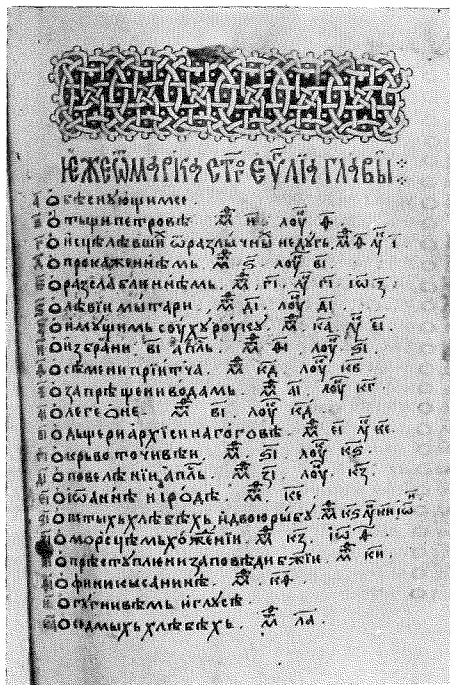 Ѥ́же ѿ марка ст҃о еѵ҃лїа главы ⁘
О бѣснующимсе
О тьщи петровѣ. м҃. и҃. лоу҃. ѳ҃.
О исцѣлѣвши ѿ разлычны недугь. м҃ ѳ҃ л҃ і҃
О прокаженнѣмь. м҃. ѕ҃. лоу҃ ві҃
О разслабленнѣмь. м҃. гі҃. л҃ гі҃ іѡ҃ з҃
О левїи мытари. м҃. ді҃. лоу҃ ді҃.
О имущимь соуху роуку. м҃. ка҃. л҃ еі҃.
О избрани ві҃ ап҃ль. м҃. ѳі҃. лоу҃ ѕі҃.
О сѣмени прїитча. м҃. кд҃. лоу҃ кв҃
О запрѣщени водамь. м҃ аі҃. лоу҃ кг҃.
О легеоне. м҃ ві҃. лоу҃ кд҃
О дьщери архїсинагоговѣ. м҃ еі҃ л҃ ке҃.
О крьвоточивѣи. м҃. ѕі҃ лоу҃ кѕ҃.
О повелѣнїи ап҃ль. м҃ зі҃. лоу҃. кз҃
О іѡаннѣ и іродѣ. м҃. ке҃.
О петыхь хлѣбѣхь, и двою рыбу. м҃ кѕ҃ л҃ ки҃ іѡ҃ и҃
О морсцѣмь хожѣнїи. м҃ кз҃. іѡ҃ ѳ҃.
О прѣступлени заповѣди бж҃їи. м҃ ки҃.
О финикысанинѣ. м҃. кѳ҃.
О гугнивѣмь и глусѣ.
О седмыхь хлѣбѣхь. м҃ ла҃.